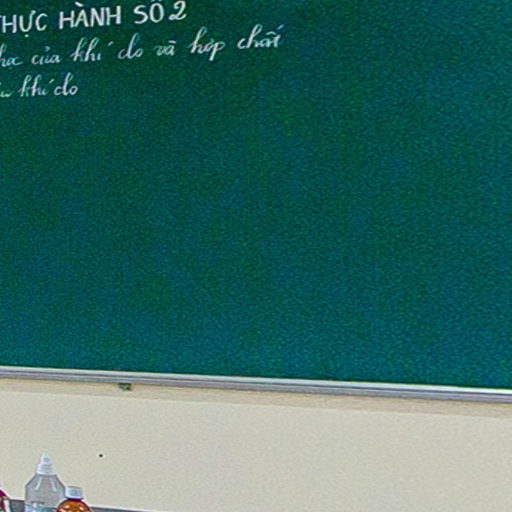 THỰC HÀNH SỐ 2
học của khí clo và hợp chất
khí clo